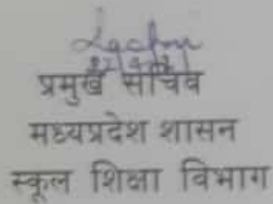 प्रमुख सचिव
मध्यप्रदेश शासन
स्कूल शिक्षा विभाग